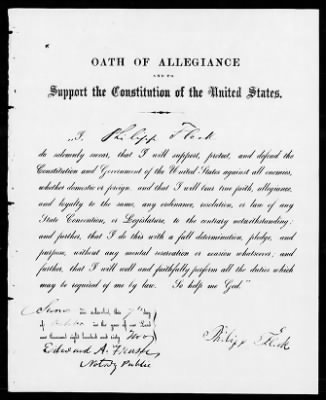 OATH OF ALLEGIANCE
AND TO
Support the Constitution of the United States.
"I, Philipp Fleck
do solemnly swear, that I will support, protect, and defend the
Constitution and Government of the United States against all enemies,
whether domestic or foreign, and that I will bear true faith, allegiance,
and loyalty to the same, any ordinance, resolution, or law of any
State Convention, or Legislature, to the contrary notwithstanding;
and further, that I do this with a full determination, pledge, and
purpose, without any mental reservation or evasion whatsoever; and
further, that I will well and faithfully perform all the duties which
may be required of me by law. So help me God."
Sworn and subscribed this 7th day
of October in the year of our Lord
one thousand eight hundred and sixty two
Edward A.
Notary Public
Philipp Fleck